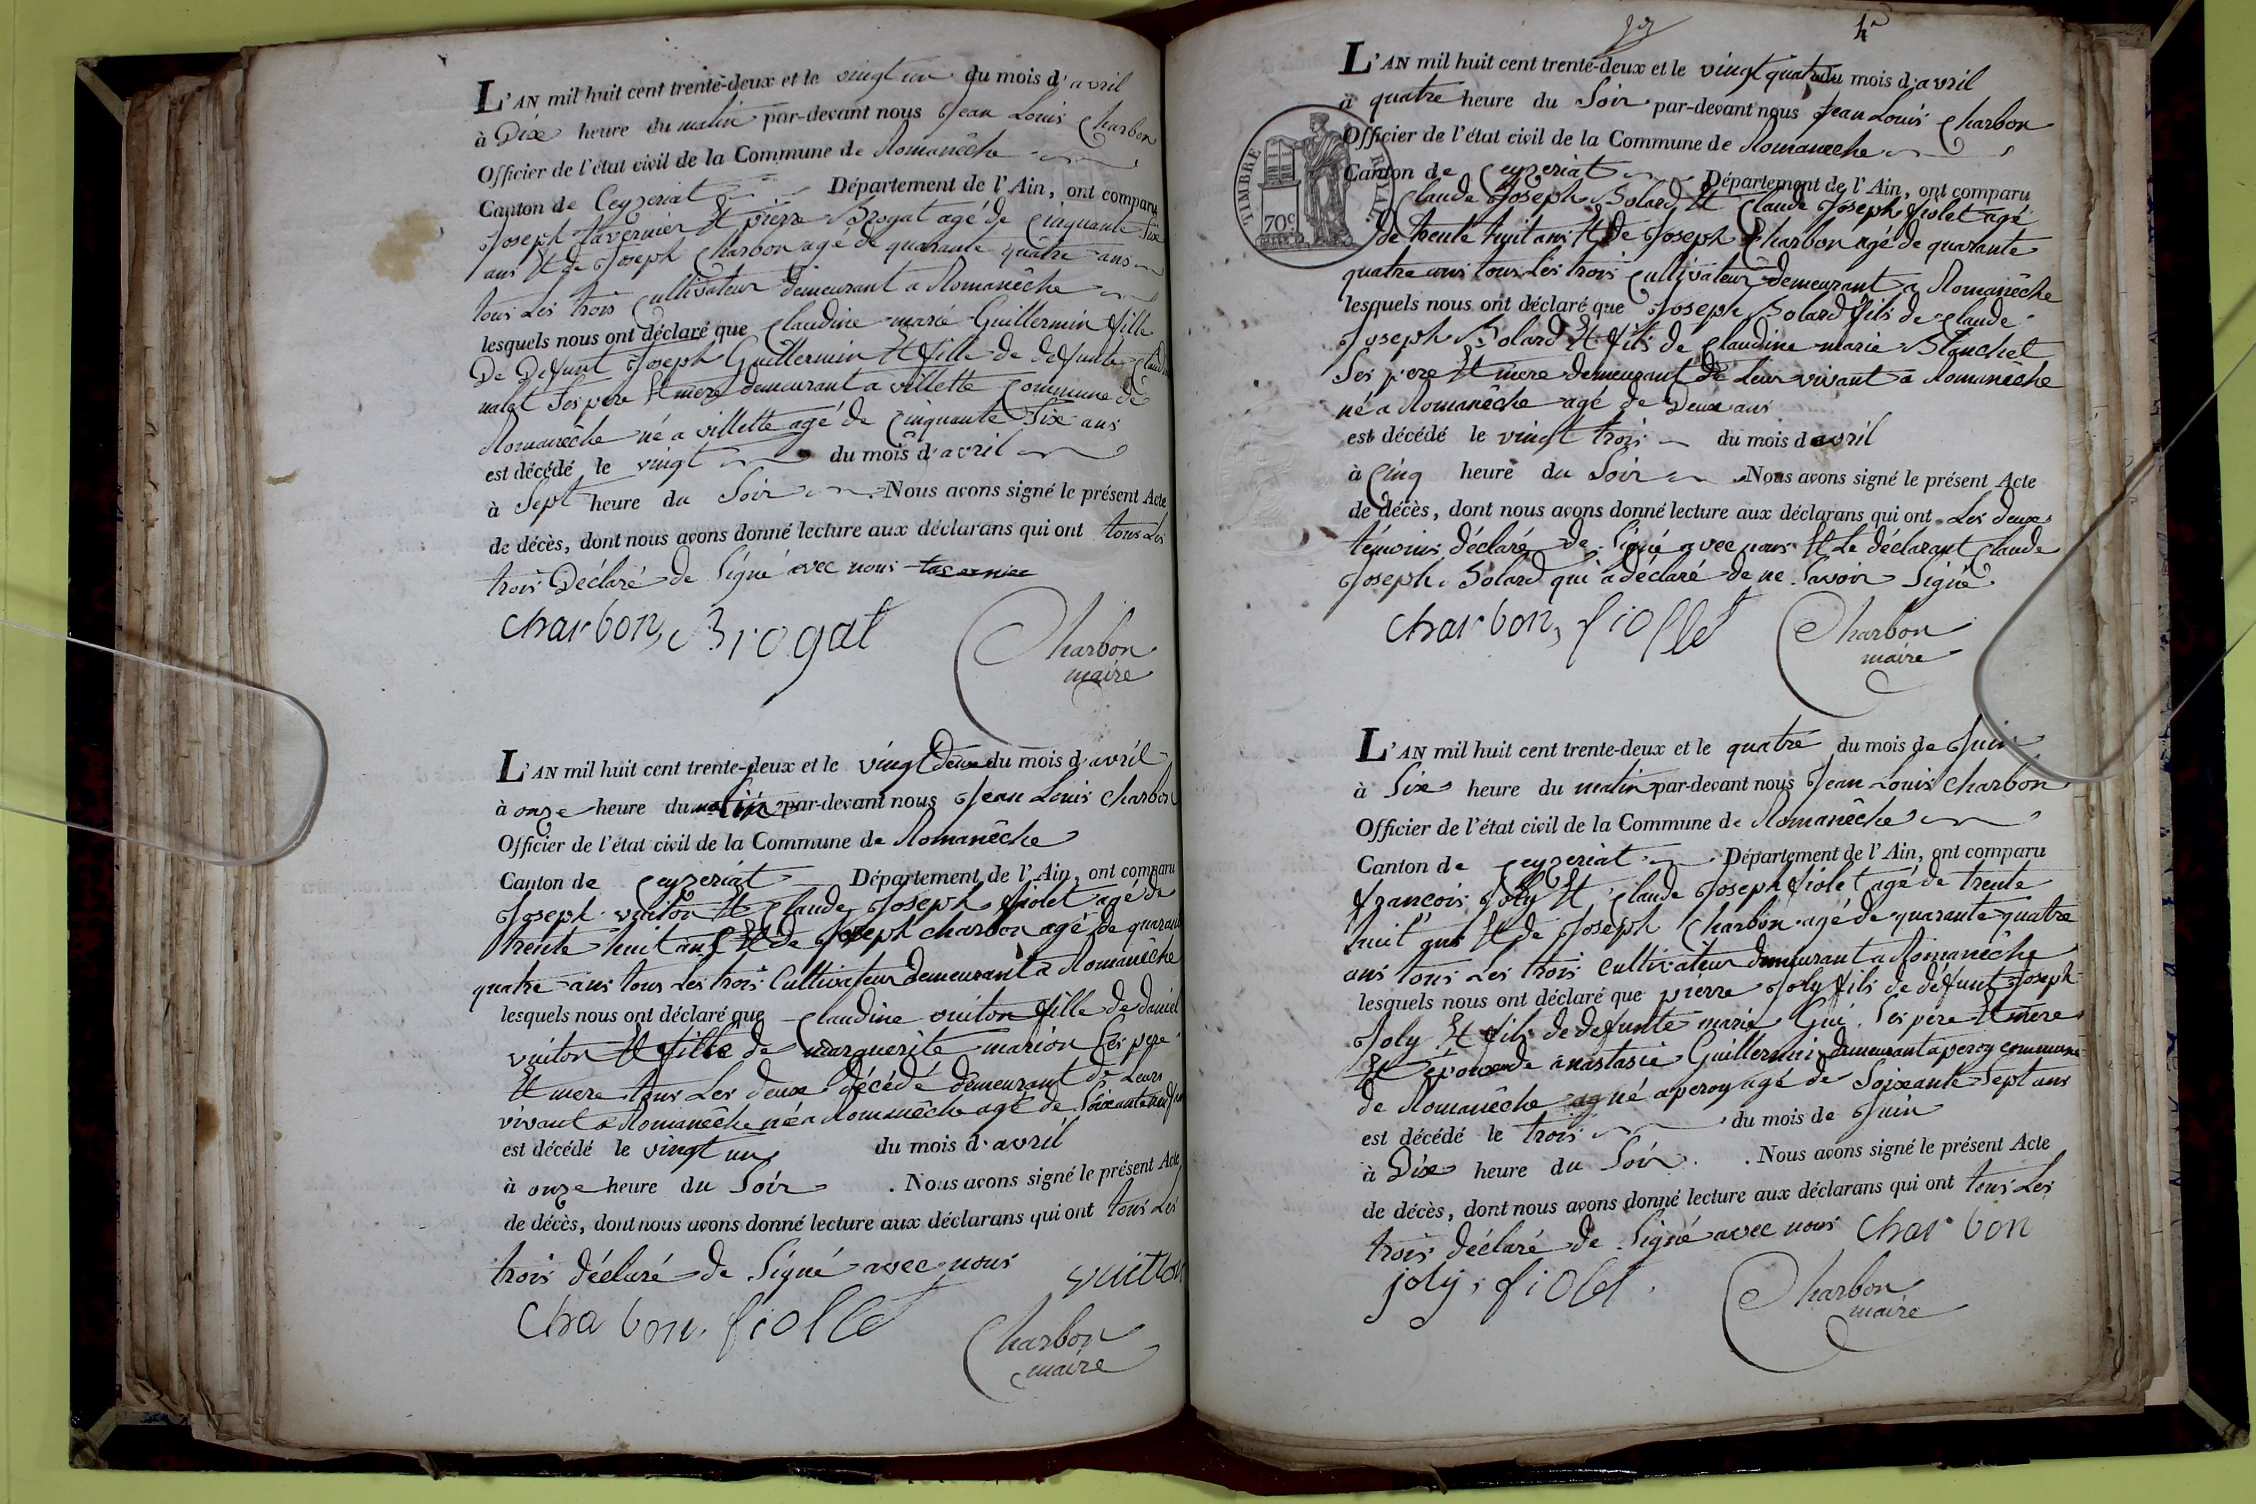 L'AN mil huit cent trente-deux et le vingt un du mois d'avril
à Dixe heure du matin par-devant nous Jean Louis Charbon
Officier de l'état civil de la Commune de Romanêche
Canton de Ceyzeriat Département de l'Ain, ont comparu
Joseph tavernier Et pierre Brogat agé de Cinquante Six
ans Et de Joseph Charbon agé de quarante quatre ans
tous Les trois Cultivateur demeurant a Romanêche
lesquels nous ont déclaré que Claudine marie Guillermin fille
De Defunt Joseph Guillermin Et fille de defunte
Ses pere Et mere demeurant a villette Commune de
Romanêche né a villette agé de Cinquante Sixe ans
est décédé le vingt du mois d'avril
à Sept heure du Soir Nous avons signé le présent Acte
de décès, dont nous avons donné lecture aux déclarans qui ont tous Les
trois Déclaré de Signé avec nous tavernier
charbon, Brogat
Charbon
maire
L'AN mil huit cent trente-deux et le vingt deux du mois d'avril
à onze heure du par-devant nous Jean Louis Charbon
Officier de l'état civil de la Commune de Romanêche
Canton de Ceyzeriat Département de l'Ain, ont comparu
Joseph vuiton Et Claude Joseph fiolet agé de
trente huit ans Et de Joseph charbon agé de quarante
quatre ans tous Les trois Cultivateur demeurant a Romanêche
lesquels nous ont déclaré que Claudine vuiton fille de daniel
vuiton Et fille de marguerite marion Ses pere
Et mere tous Les deux décédé demeurant de Leurs
vivant a Romanêche né a Romanêche agé de
est décédé le vingt un du mois d'avril
à onze heure du Soir . Nous avons signé le présent Acte
de décès, dont nous avons donné lecture aux déclarans qui ont tous Les
trois déclaré de Signé avec nous vuitton
charbon, fiollet
Charbon
maire
4
TIMBRE ROYAL
70c
L'AN mil huit cent trente-deux et le vingt quatre du mois d'avril
à quatre heure du Soir par-devant nous Jean Louis Charbon
Officier de l'état civil de la Commune de Romanêche
Canton de Ceyzeriat Département de l'Ain, ont comparu
Claude Joseph Bolard Et Claude Joseph fiolet agé
de trente huit ans Et de Joseph Charbon agé de quarante
quatre ans tous Les trois Cultivateur demeurant a Romanêche
lesquels nous ont déclaré que Joseph Bolard fils de Claude
Joseph Bolard Et fils de Claudine marie Blanchet
Ses pere Et mere demeurant de Leur vivant a Romanêche
né a Romanêche agé de Deux ans
est décédé le vingt trois du mois d'avril
à Cinq heure du Soir Nous avons signé le présent Acte
de décès, dont nous avons donné lecture aux déclarans qui ont Les deux
témoins déclaré de Signé avec nous Et Le déclarant Claude
Joseph Bolard qui a déclaré de ne Savoir Signé
charbon, fiollet
Charbon
maire
L'AN mil huit cent trente-deux et le quatre du mois de Juin
à Sixe heure du matin par-devant nous Jean Louis Charbon
Officier de l'état civil de la Commune de Romanêche
Canton de Ceyzeriat Département de l'Ain, ont comparu
françois Joly Et Claude Joseph fiolet agé de trente
huit ans Et de Joseph Charbon agé de quarante quatre
ans tous Les trois Cultivateur demeurant a Romanêche
lesquels nous ont déclaré que pierre Joly fils de défunt Joseph
Joly Et fils de defunte marie Gui Ses pere Et mere
Et époux de anastasie Guillermin demeurant a peroy commune
de Romanêche né a peroy agé de Soixante Sept ans
est décédé le trois du mois de Juin
à Dixe heure du Soir . Nous avons signé le présent Acte
de décès, dont nous avons donné lecture aux déclarans qui ont tous Les
trois déclaré de Signé avec nous charbon
joly, fiolet
Charbon
maire